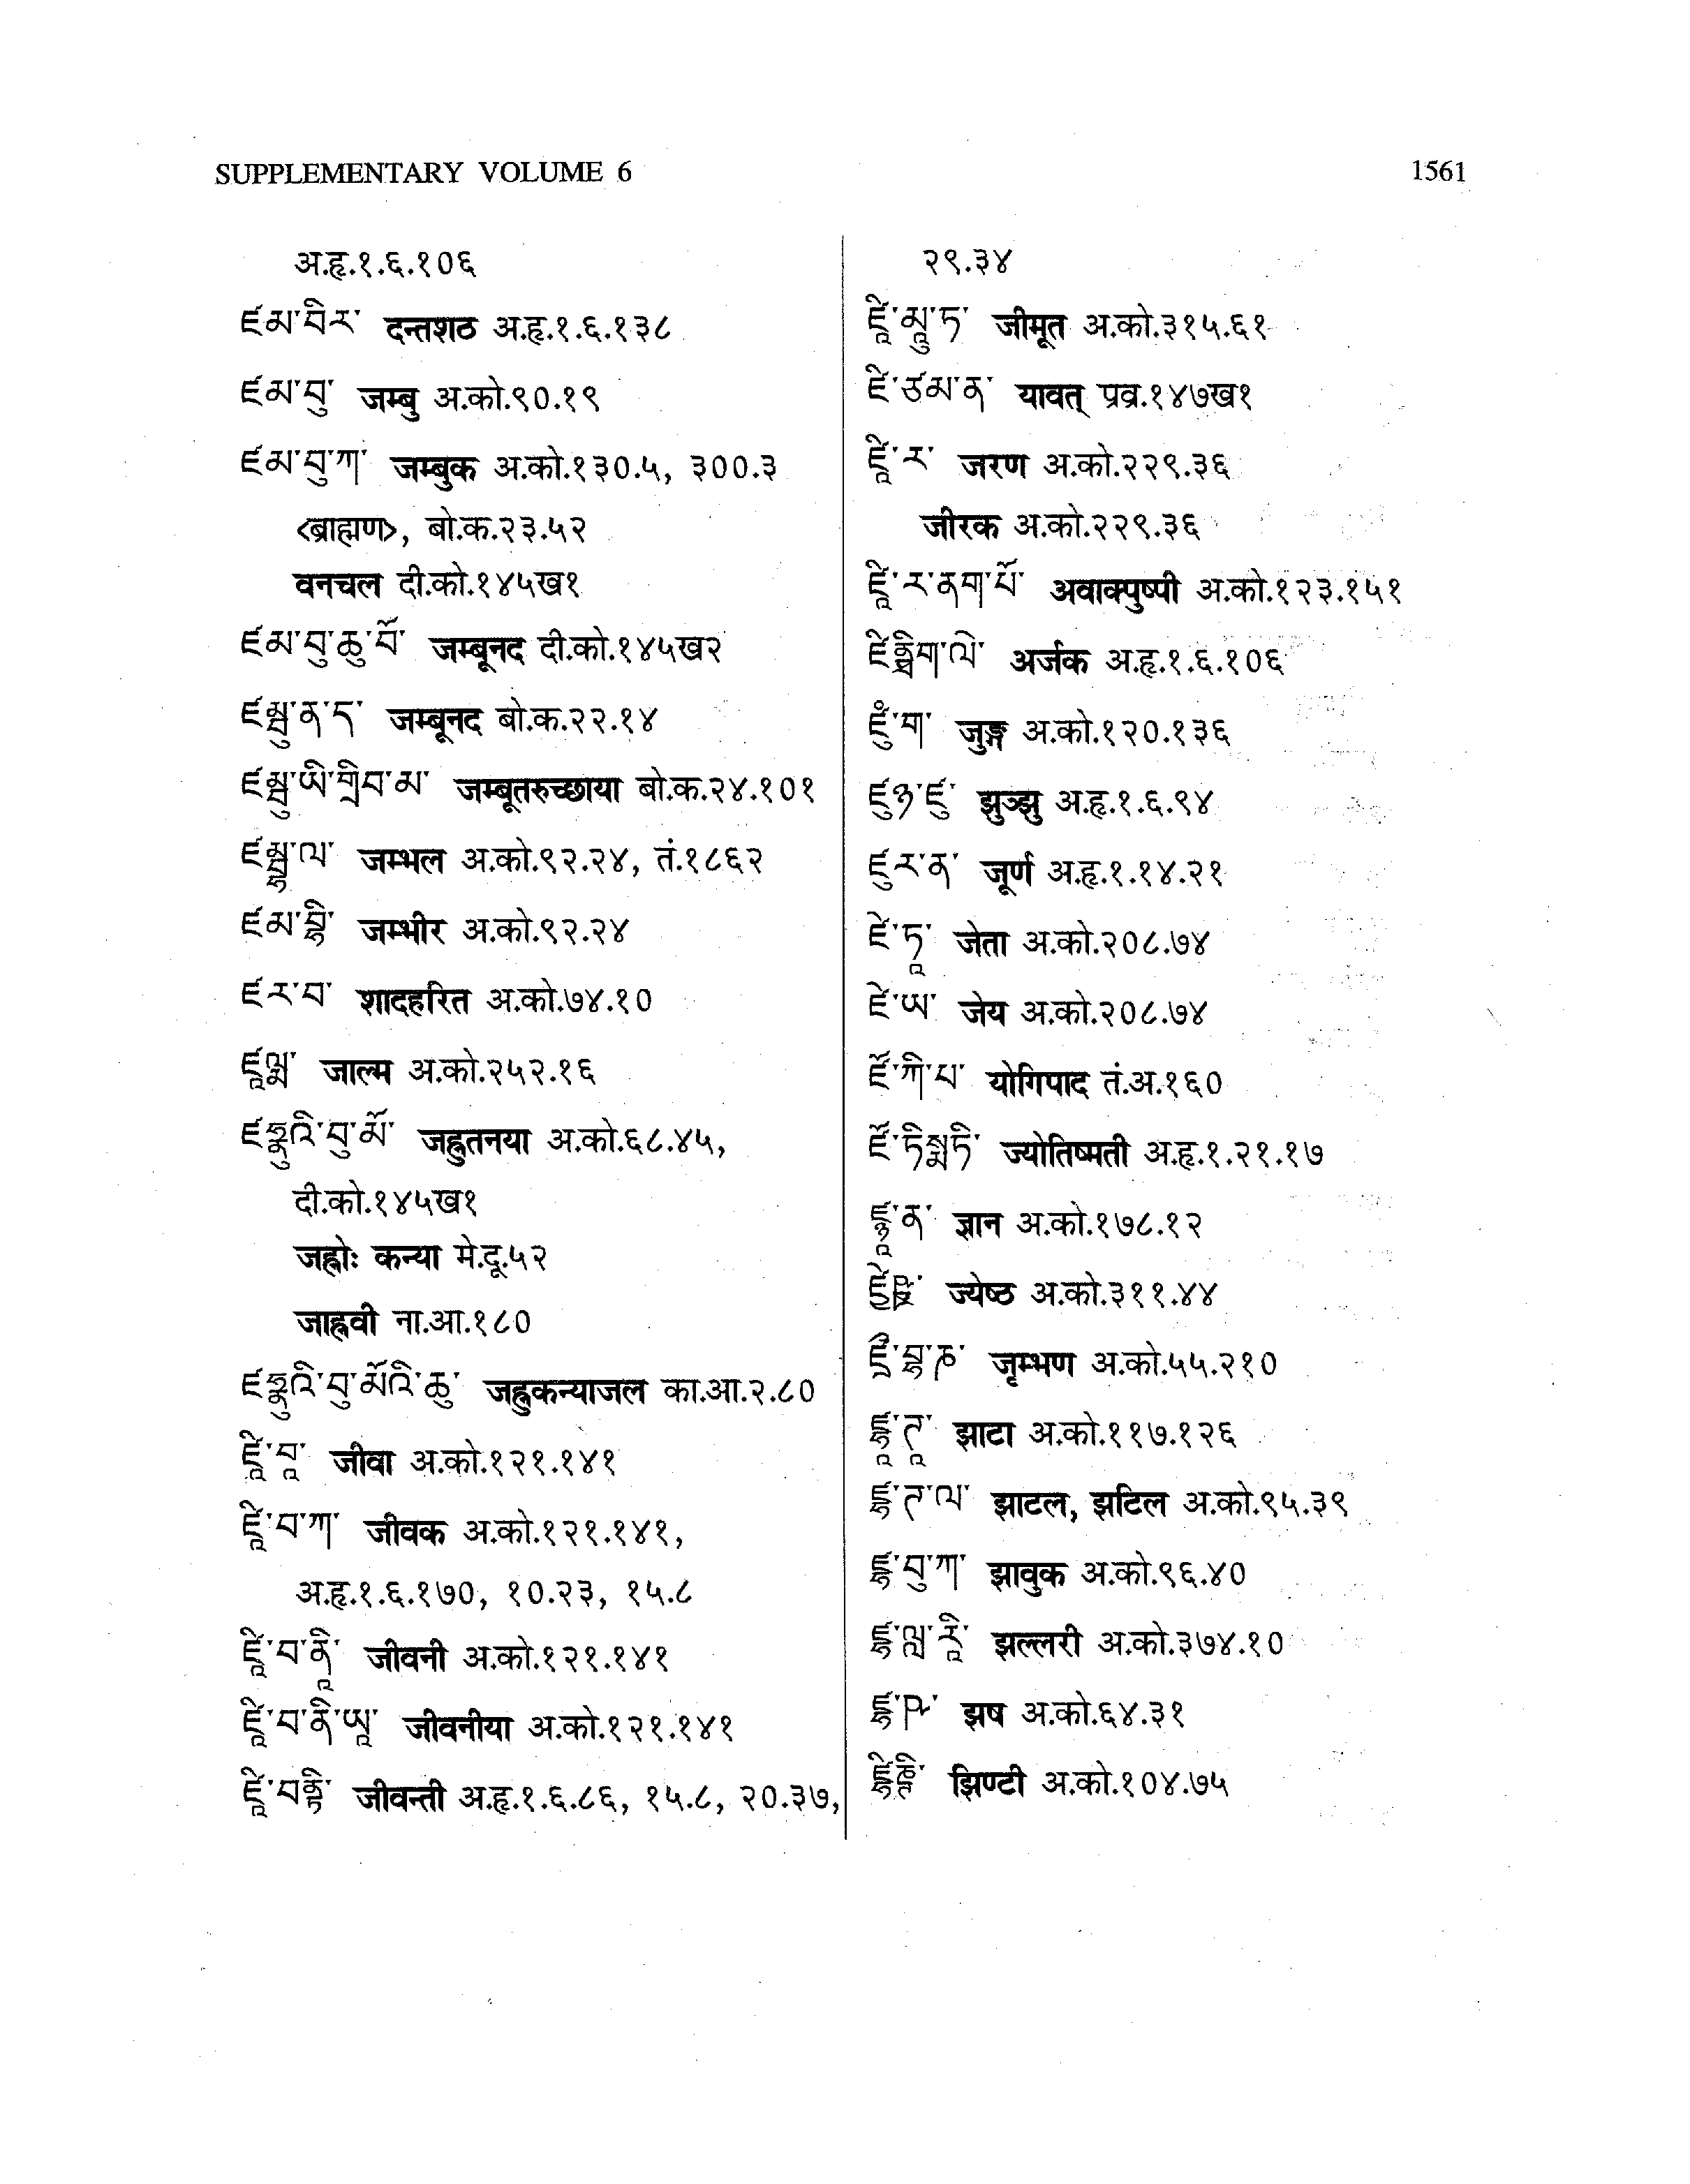 SUPPLEMENTARY VOLUME 6
1561
अ.हृ.१.६.१०६
ཛམ་བིར་ दन्तशठ अ.हृ.१.६.१३८
ཛམ་བུ་ जम्बु अ.को.९०.१९
ཛམ་བུ་ཀ་ जम्बुक अ.को.१३०.५, ३००.३
<ब्राह्मण>, बो.क.२३.५२
वनचल दी.को.१४५ख१
ཛམ་བུ་ཆུ་བོ་ जम्बूनद दी.को.१४५ख२
ཛམྦུ་ན་ད་ जम्बूनद बो.क.२२.१४
ཛམྦུ་ཡི་གྲིབ་མ་ जम्बूतरुच्छाया बो.क.२४.१०१
ཛམྦྷུ་ལ་ जम्भल अ.को.९२.२४, तं.१८६२
ཛམ་བྷི་ जम्भीर अ.को.९२.२४
ཛར་བ་ शादहरित अ.को.७४.१०
ཛཱལྨ་ जाल्म अ.को.२५२.१६
ཛཧྣུའི་བུ་མོ་ जह्नुतनया अ.को.६८.४५,
दी.को.१४५ख१
जह्नोः कन्या मे.दू.५२
जाह्नवी ना.आ.१८०
ཛཧྣུའི་བུ་མོའི་ཆུ་ जह्नुकन्याजल का.आ.२.८०
ཛཱི་བཱ་ जीवा अ.को.१२१.१४१
ཛཱི་བ་ཀ་ जीवक अ.को.१२१.१४१,
अ.हृ.१.६.१७०, १०.२३, १५.८
ཛཱི་བ་ནཱི་ जीवनी अ.को.१२१.१४१
ཛཱི་བ་ནི་ཡཱ་ जीवनीया अ.को.१२१.१४१
ཛཱི་བནྟི་ जीवन्ती अ.हृ.१.६.८६, १५.८, २०.३७,
२९.३४
ཛཱི་མཱུ་ཏ་ जीमूत अ.को.३१५.६१
ཛི་ཙམ་ན་ यावत् प्रव्र.१४७ख१
ཛཱི་ར་ जरण अ.को.२२९.३६
जीरक अ.को.२२९.३६
ཛཱི་ར་ནག་པོ་ अवाक्पुष्पी अ.को.१२३.१५१
अर्जक अ.हृ.१.६.१०६
ཛུཾ་ག་ जुङ्ग अ.को.१२०.१३६
ཛུཉ་ཛུ་ झुञ्झु अ.हृ.१.६.९४
ཛུར་ན་ जूर्ण अ.हृ.१.१४.२१
ཛེ་ཏཱ་ जेता अ.को.२०८.७४
ཛེ་ཡ་ जेय अ.को.२०८.७४
ཛོ་ཀི་པ་ योगिपाद तं.अ.१६०
ཛོ་ཏིསྨཏི་ ज्योतिष्मती अ.हृ.१.२१.१७
ཛྙཱ་ན་ ज्ञान अ.को.१७८.१२
ཛྱེཥྛ་ ज्येष्ठ अ.को.३११.४४
ཛྲྀ་མྦྷ་ཎ་ जृम्भण अ.को.५५.२१०
ཛྷཱ་ཊཱ་ झाटा अ.को.११७.१२६
ཛྷ་ཊ་ལ་ झाटल, झटिल अ.को.९५.३९
ཛྷ་བུ་ཀ་ झावुक अ.को.९६.४०
ཛྷ་ལླ་རཱི་ झल्लरी अ.को.३७४.१०
ཛྷ་ཥ་ झष अ.को.६४.३१
ཛྷིཎྚི་ झिण्टी अ.को.१०४.७५